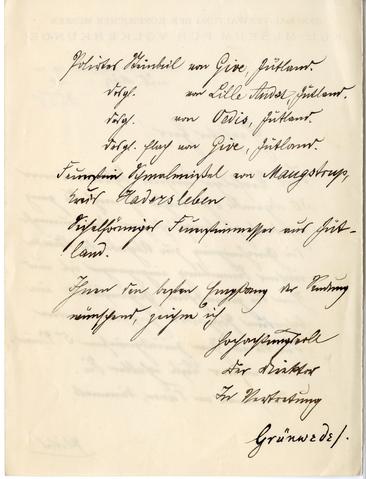 Poliertes Steinbeil von Give, Jütland.
desgl. von Lille Andst, Jütland.
desgl. von Oedis, Jütland.
desgl. flach von Give, Jütland.
Feuerstein Schmalmeißel von Maugstrup,
Kreis Hadersleben
Sichelförmiges Feuersteinmesser aus Jüt-
land.
Ihnen den besten Empfang der Sendung
wünschend, zeichne ich
Hochachtungsvoll
Der Direktor
In Vertretung
Grünwedel.